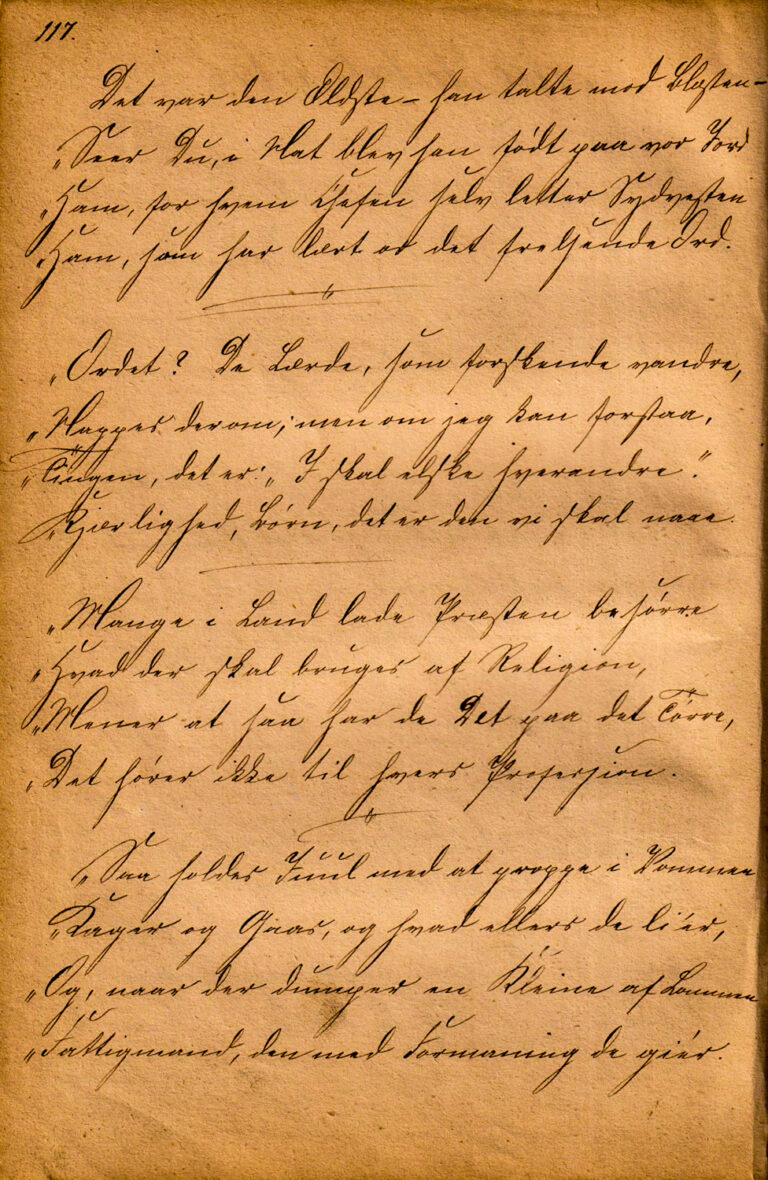 117.
Det var den Ældste – han talte mod Blæsten –
„Seer Du, i Nat blev han født paa vor Jord
„Ham, for hvem Chefen selv letter Sydvesten
„Ham, som har lært os det frelsende Ord.
„Ordet? De Lærde, som forskende vandre,
„Nappes derom; men om jeg kan forstaa,
„Tingen, det er: „I skal elske hverandre".
„Kjærlighed, Børn, det er den vi skal naae.
„Mange i Land lade Præsten besørre
„Hvad der skal bruges af Religion,
„Mener at saa har de Det paa det Tørre,
„Det hører ikke til hvers Profession.
„Saa holdes Juul med at proppe i Vommen
„Kager og Gaas, og hvad ellers de li'er,
„Og, naar der dumper en Kleine af Lommen
„Fattigmand, den med Formaning de gi'er.